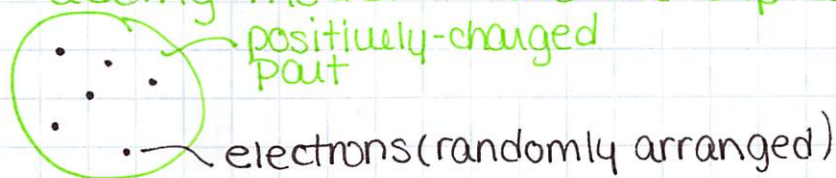 positively-charged
part
electrons(randomly arranged)